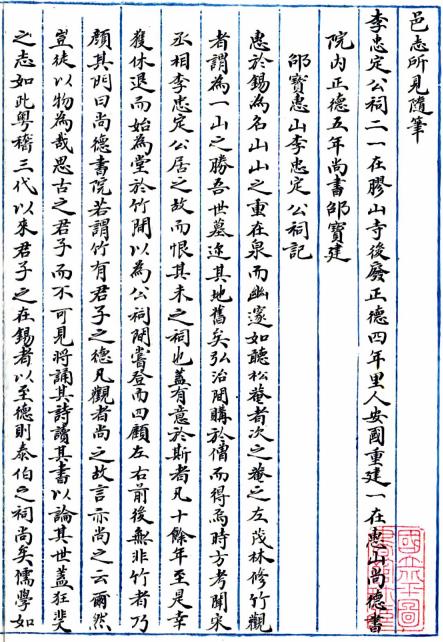 邑志所見隨筆
李忠定公祠二一在膠山寺後廢正德四年里人安國重建一在惠山尚德書
院內正德五年尚書邵寶建
邵寶惠山李忠定公祠記
惠於錫為名山山之重在泉而幽邃如聽松菴者次之菴之左茂林修竹觀
者謂為一山之勝吾世墓迩其地舊矣弘治間購於僧而得焉時方考聞宋
丞相李忠定公居之故而恨其未之祠也蓋有意於斯者凡十餘年至是幸
獲休退而始為堂於竹間以為公祠間嘗登而四顧左右前後無非竹者乃
顏其門曰尚德書院若謂竹有君子之德凡觀者尚之故言亦尚之云爾然
豈徒以物為哉思古之君子而不可見將誦其詩讀其書以論其世蓋狂斐
之志如此粵稽三代以來君子之在錫者以至德則泰伯之祠尚矣儒學如